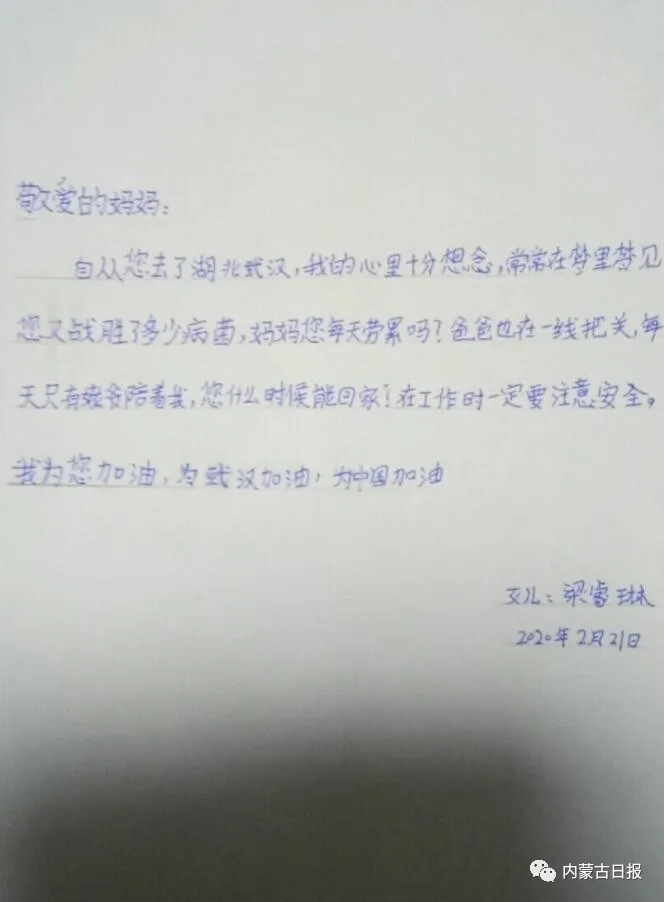 敬爱的妈妈：
自从您去了湖北武汉，我的心里十分想念，常常在梦里梦见
您又战胜了多少病菌，妈妈您每天劳累吗？爸爸也在一线把关，每
天只有爷陪着我，您什么时候能回家！在工作时一定要注意安全。
我为您加油，为武汉加油，为中国加油
女儿：梁睿琳
2020年2月21日
内蒙古日报